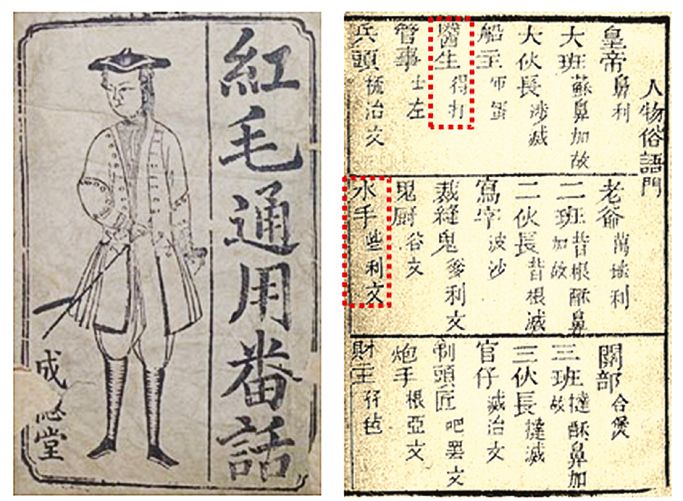 紅毛通用番話
成德堂
人物俗語門
皇帝 鼻利
大班 蘇鼻加故
大伙長 滅
船主 蛋
醫生 得打
管事 士左
兵頭 治文
老爺 萬利
二班 昔根酥鼻加故
二伙長 昔根滅
寫字 波沙
裁縫鬼 爹利文
鬼厨 谷文
水手 些利文
關部 合煲
三班 撻酥鼻加故
三伙長 撻滅
官仔 滅治文
剃頭匠 吧罷文
炮手 根亞文
財主 孖毡